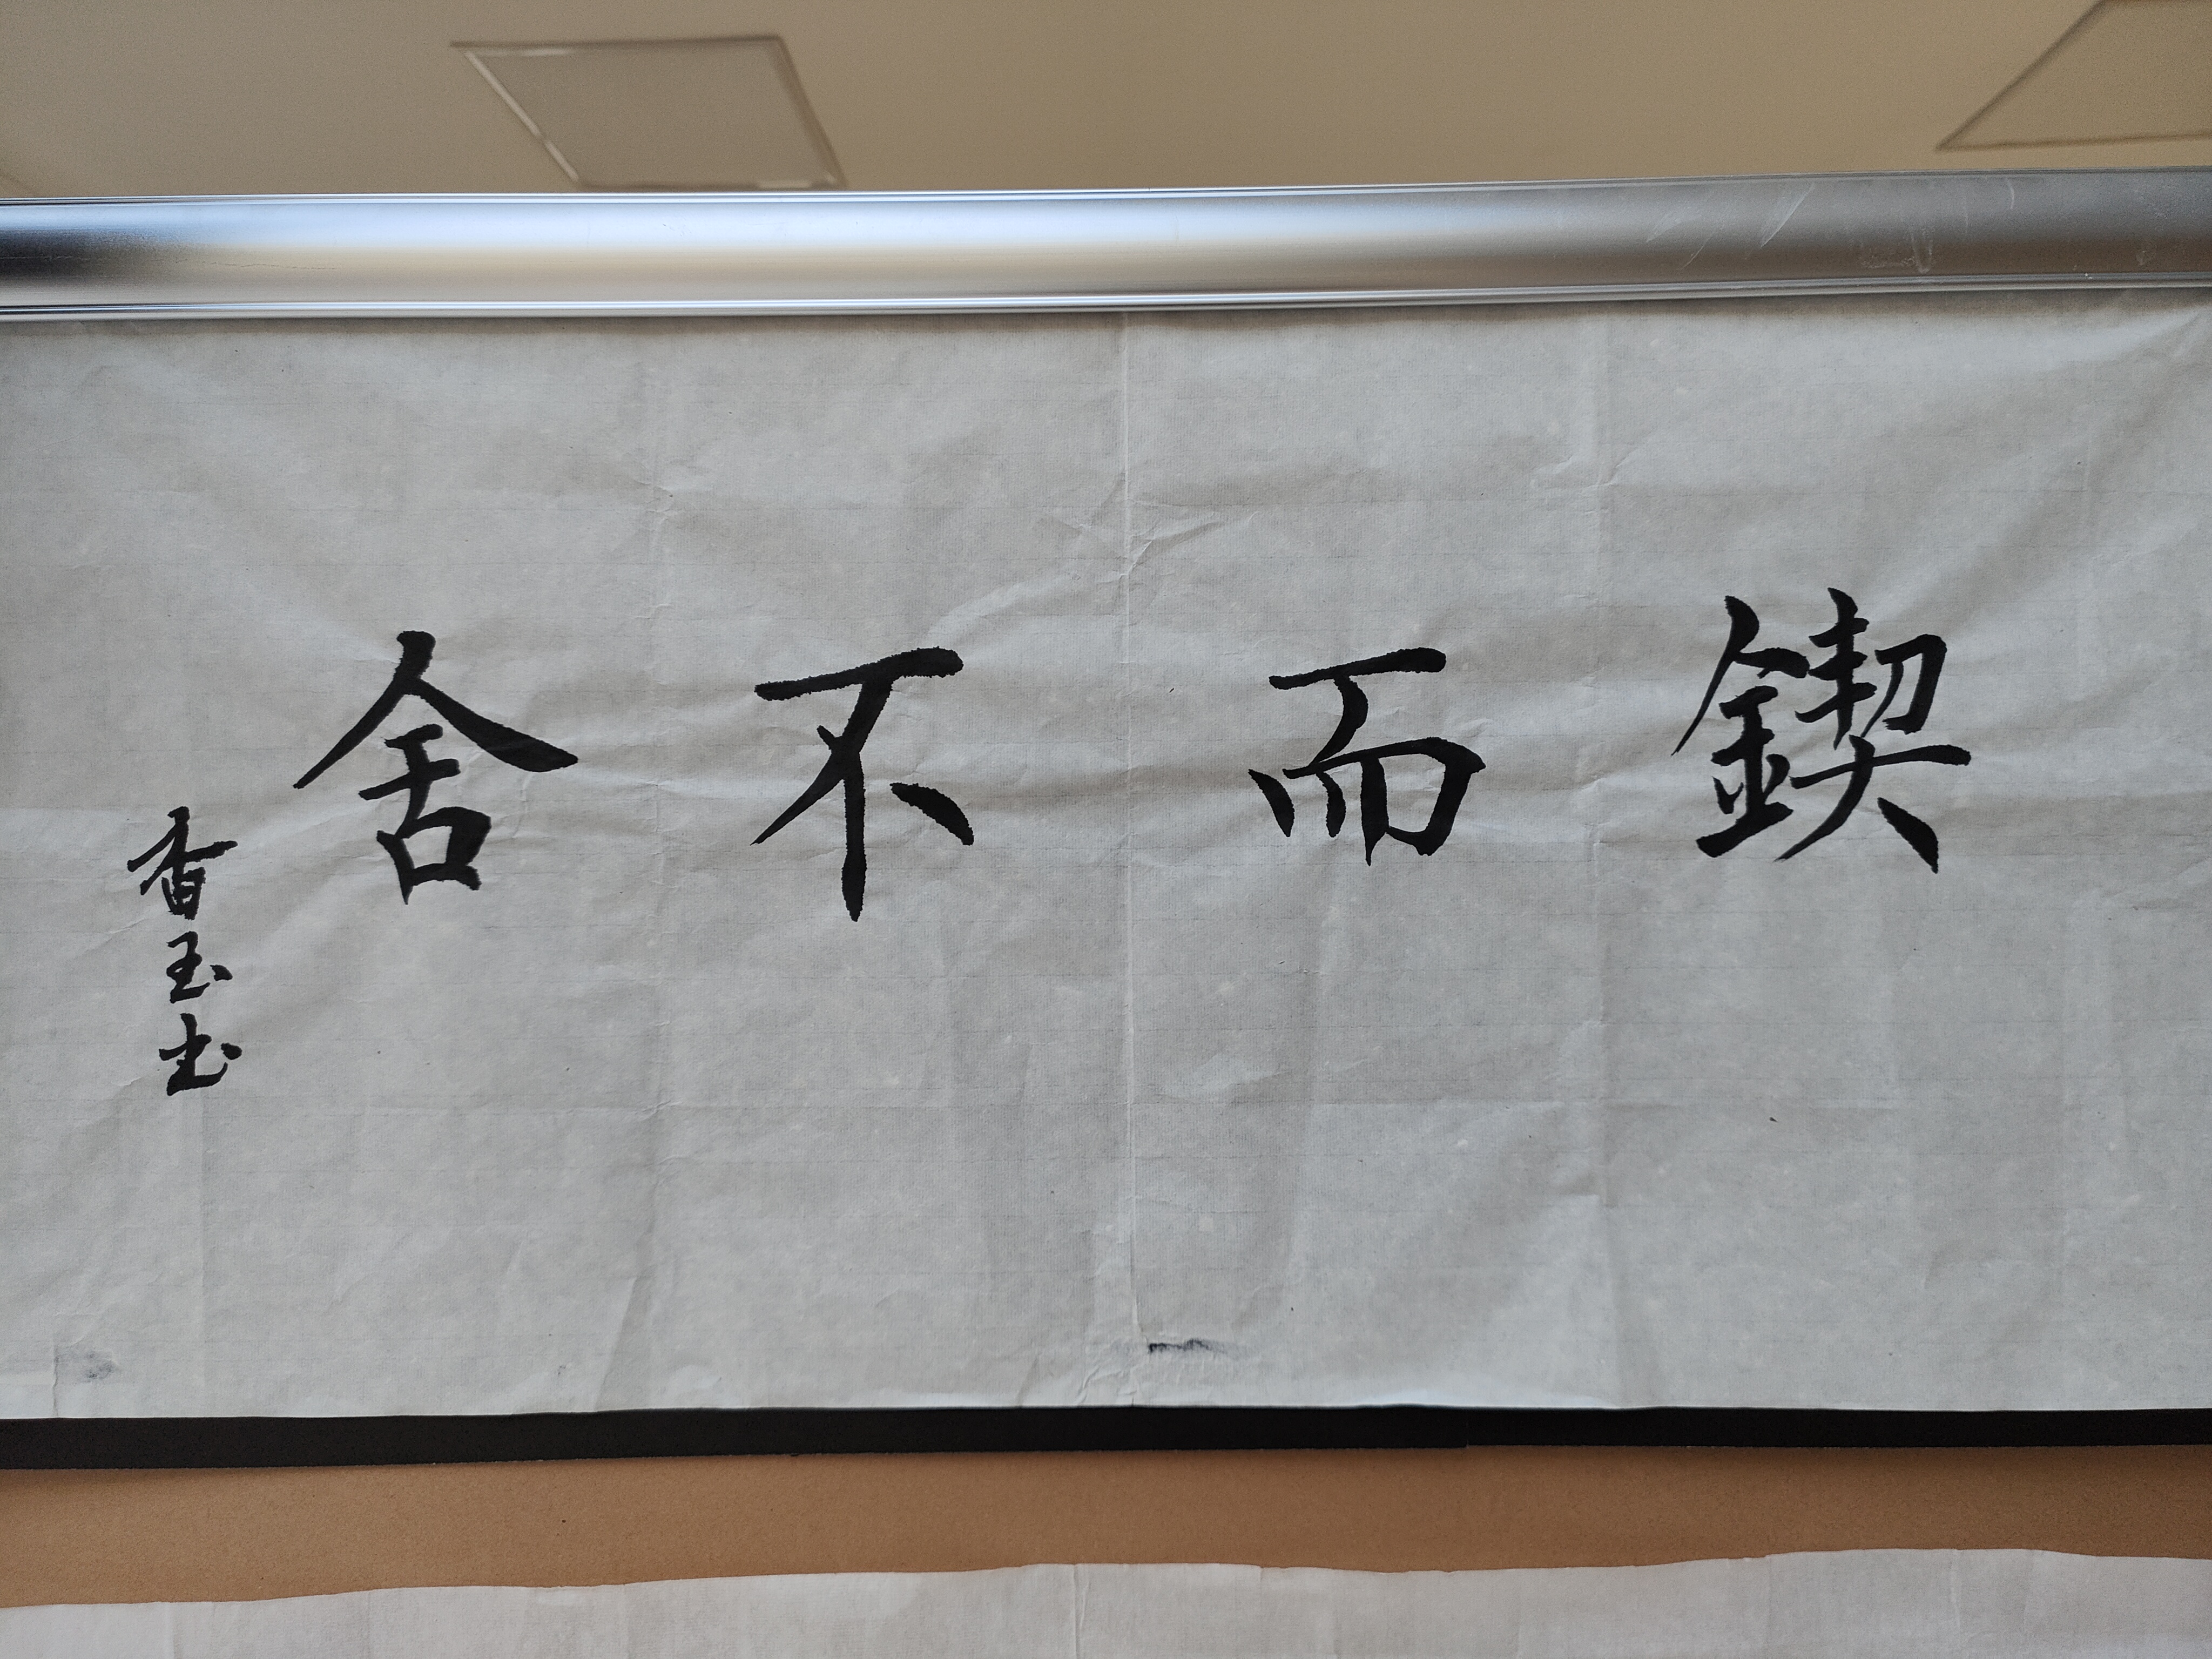 鍥而不舍
香玉书